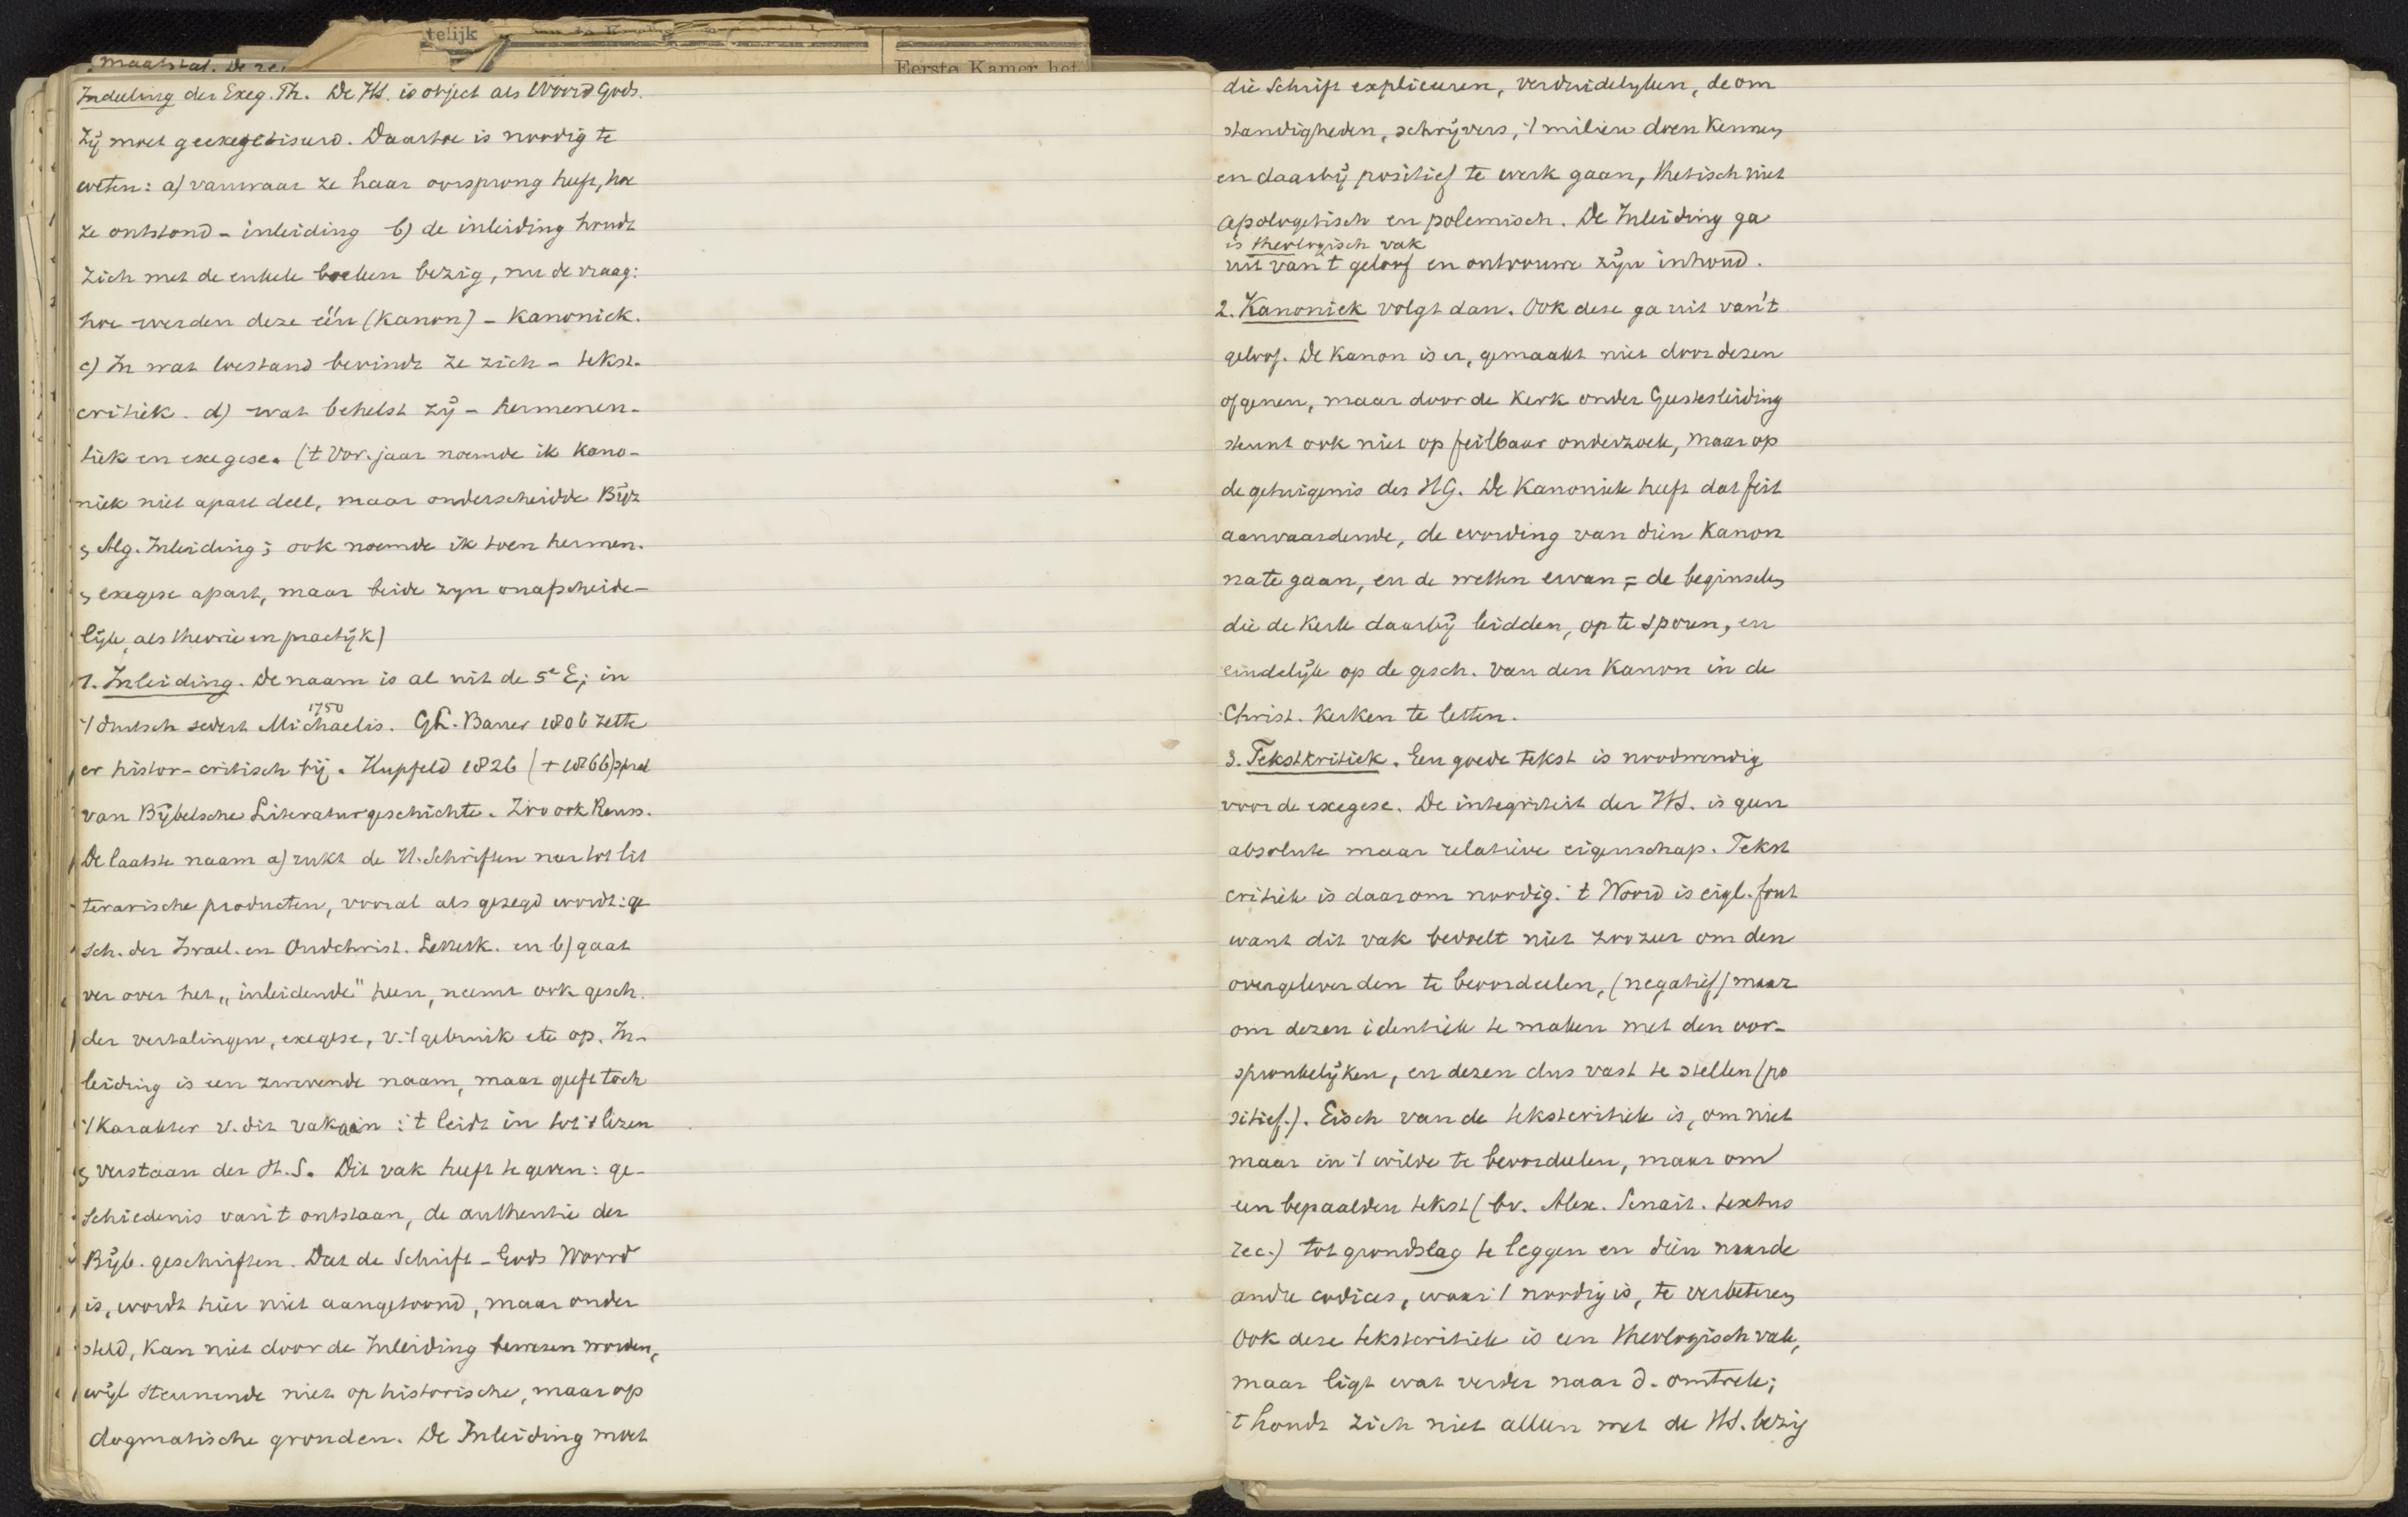 telijk
Eerste Kamer het
maatstaf. De re
Indeeling der Exeg. Th. De HS. is object als Woord Gods.
Zij moet geexegetiseerd. Daartoe is noodig te
weten: a) vanwaar ze haar oorsprong heeft, hoe
ze ontstond - inleiding b) de inleiding houdt
zich met de enkele boeken bezig, nu de vraag:
hoe werden deze één (Kanon) - Kanoniek.
c) In wat toestand bevindt ze zich - tekst-
critiek. d) wat behelst zij - hermeneu-
tiek en exegese. ('t Vor. jaar noemde ik Kano-
niek niet apart deel, maar onderscheidde Bijz
& Alg. Inleiding; ook noemde ik toen hermen.
& exegese apart, maar beide zyn onafscheide-
lijk, als theorie en practijk)
1. Inleiding. De naam is al uit de 5e E; in
't duitsch sedert Michaelis. GL. Bauer 1806 zette
1750
er histor-critisch bij. Hupfeld 1826 (+1866) sprak
van Bijbelsche Literaturgeschichte. Zoo ook Reuss.
De laatste naam a) rukt de H. Schriften neer tot lit
terarische producten, vooral als gezegd wordt: ge
sch. der Israel. en Oudchrist. Letterk. en b) gaat
ver over het „inleidende" heen, neemt ook gesch.
der vertalingen, exegese, v. 't gebruik etc op. In-
leiding is een zwevende naam, maar geeft toch
't Karakter v. dit vak aan: 't leidt in tot 't lezen
& verstaan der H.S. Dit vak heeft te geven: ge-
schiedenis van 't ontstaan, de authentie der
Bijb. geschriften. Dat de Schrift - Gods Woord
is, wordt hier niet aangetoond, maar onder
steld, kan niet door de Inleiding bewezen worden,
wijl steunende niet op historische, maar op
dogmatische gronden. De Inleiding moet
die Schrift expliceeren, verduidelyken, de om
standigheden, schrijvers, 't milieu doen kennen
en daarbij positief te werk gaan, thetisch niet
apologetisch en polemisch. De Inleiding ga
is theologisch vak
uit van 't geloof en ontvouwe zijn inhoud.
2. Kanoniek volgt dan. Ook deze ga uit van 't
geloof. De Kanon is er, gemaakt niet door dezen
of genen, maar door de Kerk onder Geestesleiding
steunt ook niet op feilbaar onderzoek, maar op
de getuigenis des HG. De Kanoniek heeft dat feit
aanvaardende, de wording van dien Kanon
na te gaan, en de wetten ervan = de beginselen
die de Kerk daarbij leidden, op te sporen, en
eindelijk op de gesch. van den Kanon in de
Christ. Kerken te letten.
3. Tekstkritiek. Een goede tekst is noodwendig
voor de exegese. De integriteit der HS. is geen
absolute maar relatieve eigenschap. Tekst
critiek is daarom noodig. 't Woord is eigl. fout
want dit vak bedoelt niet zoozeer om den
overgeleverden te beoordeelen, (negatief) maar
om dezen identiek te maken met den oor-
spronkelijken, en dezen dus vast te stellen (po
sitief.). Eisch van de tekstcritiek is, om niet
maar in 't wilde te beoordeelen, maar om
een bepaalden tekst (bv. Alex. Sinait. textus
rec.) tot grondslag te leggen en dien naar de
andre codices, waar 't noodig is, te verbeteren
Ook deze tekstcritiek is een theologisch vak,
maar ligt wat verder naar d. omtrek;
't houdt zich niet alleen met de HS. bezig